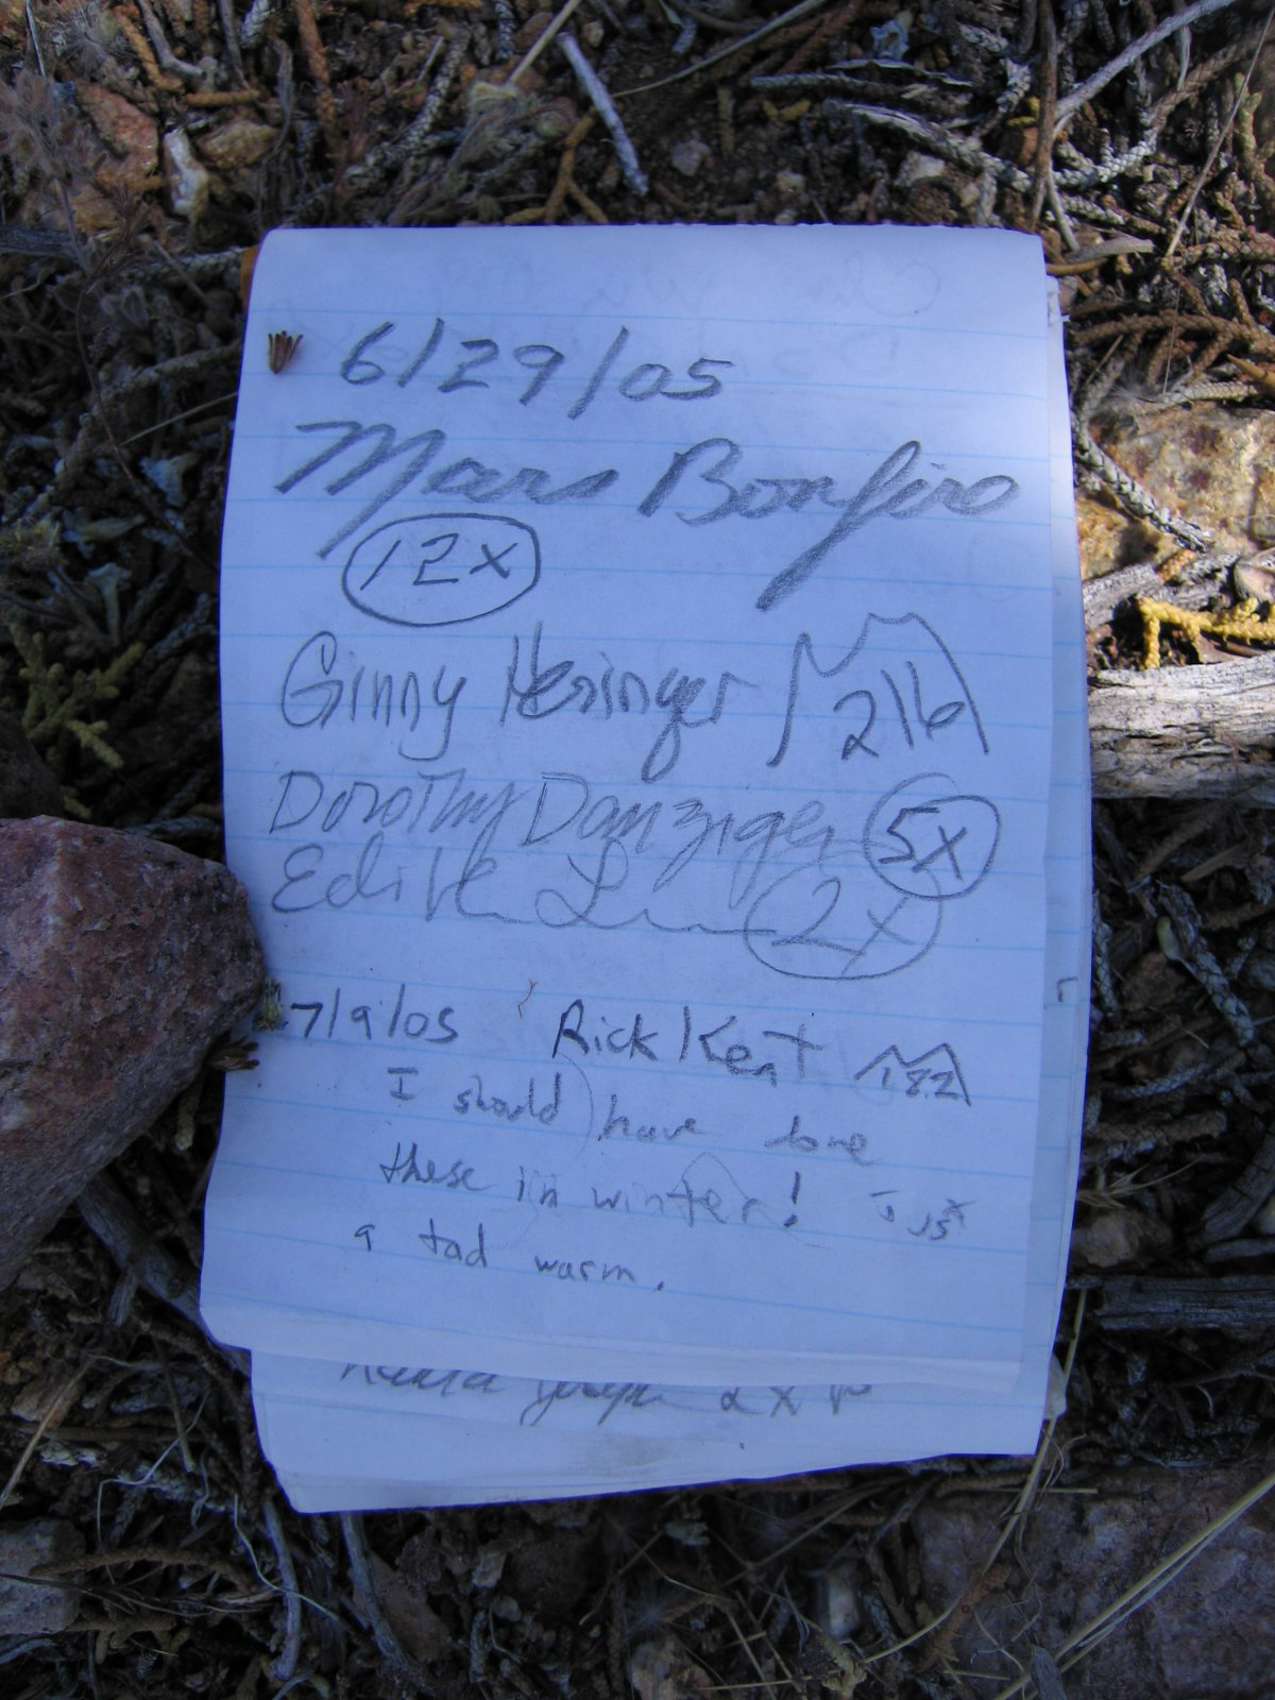 6/29/05
Mars Bonfire
12x
Ginny Heringer 216
Dorothy Danziger 5x
Edith Liu 2x
7/9/05 Rick Kent 182
I should have done
these in winter! Just
a tad warm.
2x